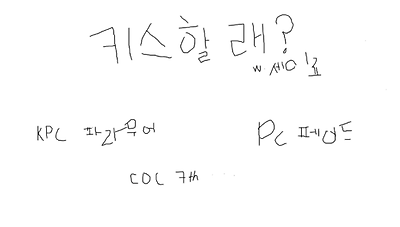 키스할래?
w 세이요
KPC 파라무어
PC 페이드
COC 7th